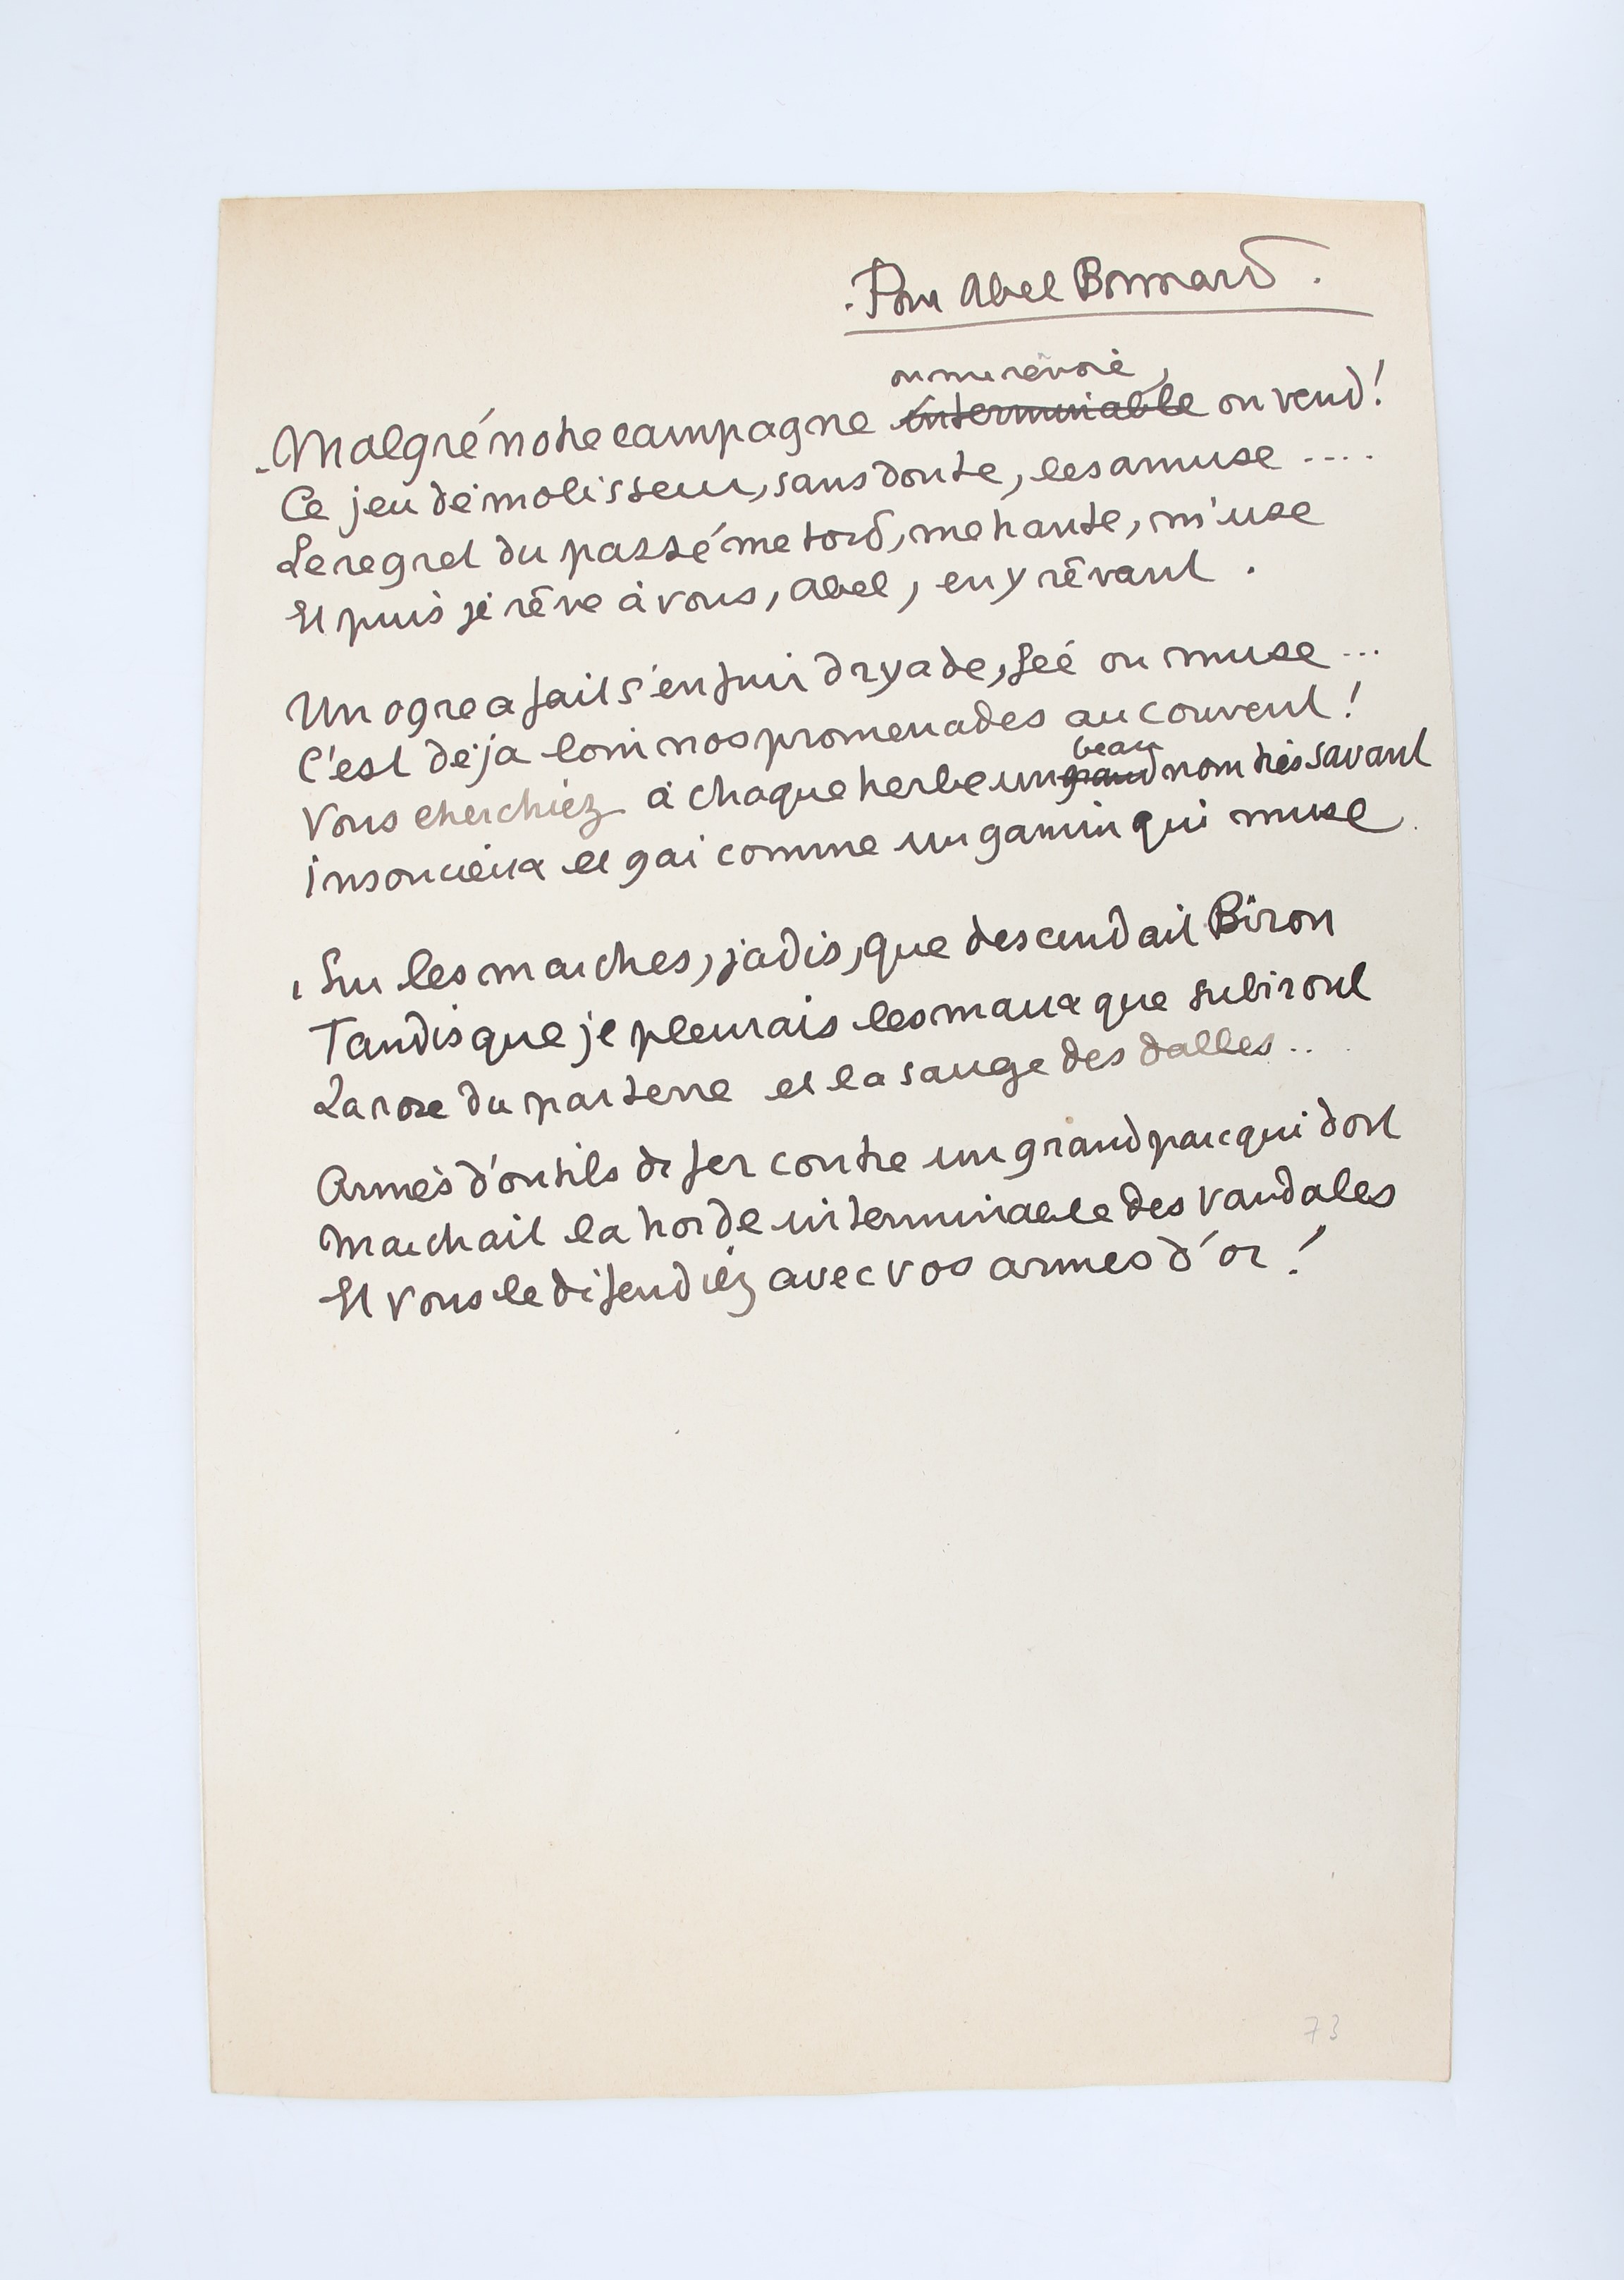 . Pour Abel Bonnard .
on me renvoie,
Malgré notre campagne interminable on vend!
Ce jeu démolisseur, sans doute, les amuse ....
Le regret du passé me tord, me hante, m'use
Et puis je rêve à vous, Abel, en y rêvant .
Un ogre a fait s'enfuir dryade, fée ou muse ...
C'est déjà loin nos promenades au couvent!
beau
Vous cherchiez à chaque herbe un grand nom très savant
insoucieux et gai comme un gamin qui muse.
Sur les marches, jadis, que descendait Biron
Tandis que je pleurais les maux que subiront
La rose du parterre et la sauge des dalles...
Armés d'outils de fer contre un grand parc qui dort
Marchait la horde interminable des vandales
Et vous le défendiez avec vos armes d'or!
73